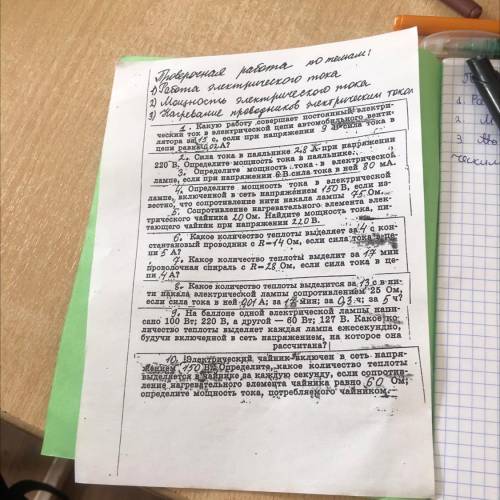 Проверочная работа по темам:
1) Работа электрического тока
2) Мощность электрического тока
3) Нагревание проводников электрическим током
1. Какую работу совершает постоянный электри-
ческий ток в электрической цепи автомобильного венти-
лятора за 13 с, если при напряжении 9 сила тока в
цепи равна А?
2. Сила тока в паяльнике 2,8 А при напряжении
220 В. Определите мощность тока в паяльнике.
3. Определите мощность тока в электрической
лампе, если при напряжении В сила тока в ней 80 мА.
4. Определите мощность тока в электрической
лампе, включенной в сеть напряжением 150 В, если из-
вестно, что сопротивление нити накала лампы 75 Ом.
5. Сопротивление нагревательного элемента элек-
трического чайника 20 Ом. Найдите мощность тока, пи-
тающего чайник при напряжении 220 В.
6. Какое количество теплоты выделяет за 4 с кон-
стантановый проводник с R=14 Ом, если сила тока в це-
пи 5 А?
7. Какое количество теплоты выделит за 17 мин
проволочная спираль с R=28 Ом, если сила тока в це-
пи 4 А?
8. Какое количество теплоты выделится за 13 с в ни-
ти накала электрической лампы сопротивлением 25 Ом,
если сила тока в ней А? за мин; за ч; за 5 ч?
9. На баллоне одной электрической лампы напи-
сано 100 Вт; 220 В, а другой — 60 Вт; 127 В. Какое ко-
личество теплоты выделяет каждая лампа ежесекундно,
будучи включенной в сеть напряжением, на которое она
рассчитана?
10. Электрический чайник включен в сеть напря-
жением 150 В. Определите, какое количество теплоты
выделяется в чайнике за каждую секунду, если сопротив-
ление нагревательного элемента чайника равно 60 Ом;
определите мощность тока, потребляемого чайником.